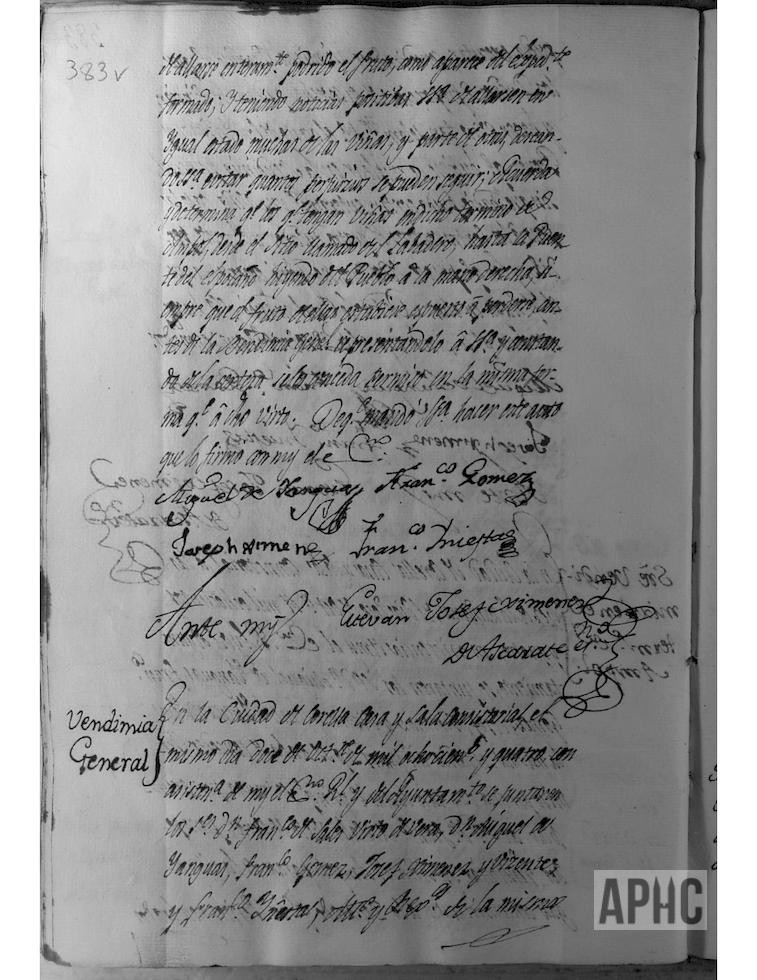 383 v
Hallarse enteram.te podrido el fruto, como aparece del exped.te
formado; y teniendo noticias positibas S.Sa. se allarsen en
Ygual estado muchas de las viñas, y parte de otras, desean-
do S.Sa. evitar quantos perjuicios se pueden seguir; Acuerda
y determina q.e los q.e tengan viñas en dicho termino de
Ambos, desde el sitio llamado el Labadero, hasta la Puen-
te del yendo del Pueblo a la mano derecha, si-
empre que el fruto de ellas estubiere espuesto a perderse, an-
tes de la Vendimia Gen.l representandolo â S.Sa. y constan-
do de la certeza, se les conceda permiso en la misma for-
ma q.e â dho Visto. Deq.e mandó S.Sa. hacer este auto
que lo firmó con my el Es.no
Miguel de Yanguas Fran.co Gomez
Joseph Ximenez Fran.co Yniestas
Ante my Estevan Josef Ximenez
de Ascarate
Vendimia
General
En la Ciudad de Corella Casa y Sala Consistorial, el
mismo dia doce de Oct.re de mil ochocien.s y quatro con
asisten.a de my el Es.no R.l y del Ayuntam.to se juntaron
los S.res D.n Fran.co de Sales Virto de Vera, D.n Miguel de
Yanguas, Fran.co Gomez, Josef Ximenez y
y Fran.co Yniestas, Alc.e y Reg.s de la misma
APHC